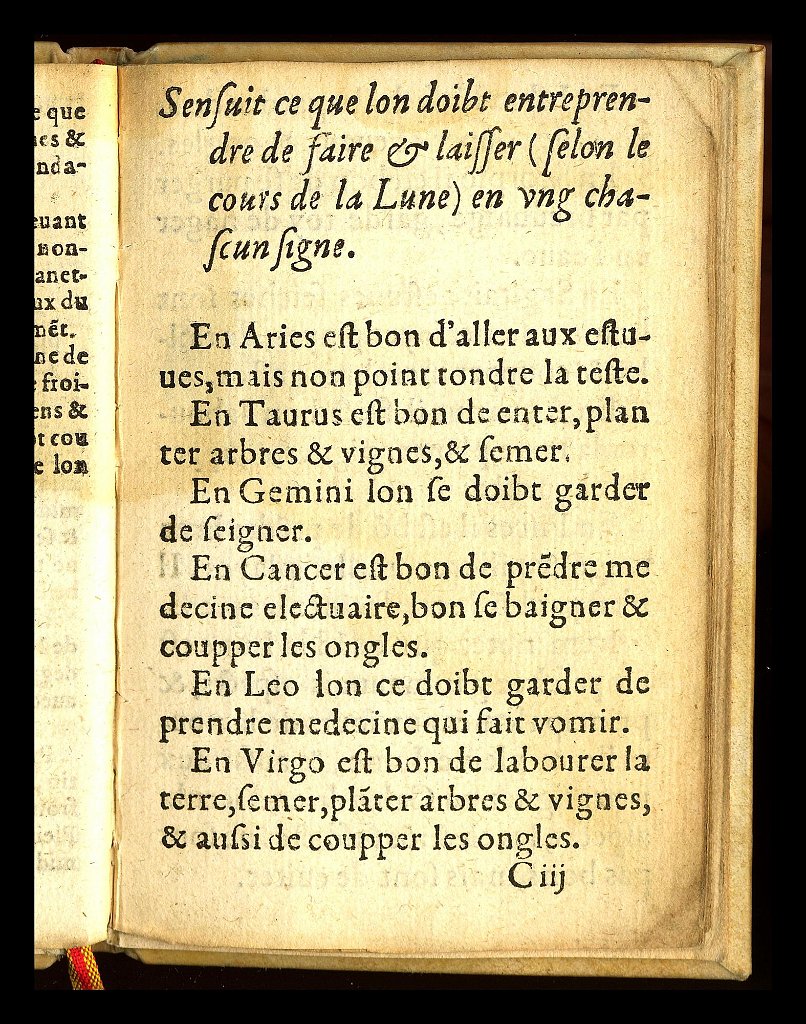 e que
es &
nda-
euant
non-
anet-
ux du
mẽt.
ne de
froi-
ens &
t cou
e lon
Senſuit ce que lon doibt entrepren-
dre de faire & laiſſer (ſelon le
cours de la Lune) en vng cha-
ſcun ſigne.
En Aries eſt bon d'aller aux eſtu-
ues, mais non point tondre la teſte.
En Taurus eſt bon de enter, plan
ter arbres & vignes, & ſemer.
En Gemini lon ſe doibt garder
de ſeigner.
En Cancer eſt bon de prẽdre me
decine electuaire, bon ſe baigner &
coupper les ongles.
En Leo lon ce doibt garder de
prendre medecine qui fait vomir.
En Virgo eſt bon de labourer la
terre, ſemer, plãter arbres & vignes,
& auſsi de coupper les ongles.
C iij